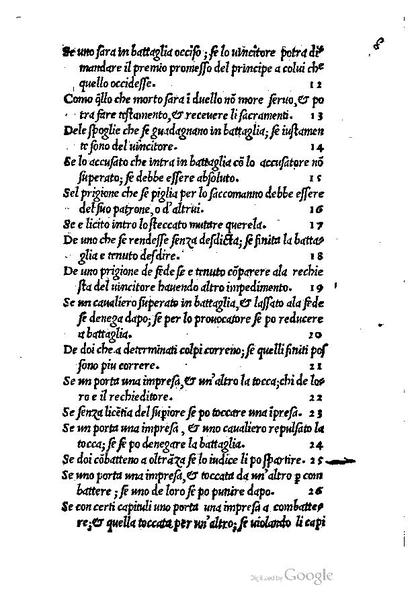 Se uno sara in battaglia occiso; se lo uincitore potra di
mandare il premio promesso del principe a colui che
quello occidesse. 12
Como q̃llo che morto sara ĩ duello nõ more seruo, & po
tra fare testamento, & receuere li sacramenti. 13
Dele spoglie che se guadagnano in battaglia; se iustamen
te sono del uincitore. 14
Se lo accusato che intra in battaglia cõ lo accusatore nõ
superato; se debbe essere absoluto. 15
Sel prigione che se piglia per lo saccomanno debbe essere
del suo patrone, o d'altrui. 16
Se e licito intro lo steccato mutare querela. 17
De uno che se rendesse senza desdicta; se finita la batta
glia e tenuto desdire. 18
De uno prigione de fede se e tenuto cõparere ala rechie
sta del uincitore hauendo altro impedimento. 19
Se un caualiero superato in battaglia, & lassato ala fede
se denega dapo; se per lo prouocatore se po reducere
a battaglia. 20
De doi che a determinati colpi correno; se quelli finiti pos
sono piu correre. 21
Se un porta una impresa, & un'altro la tocca; chi de lo
ro e il rechieditore. 22
Se senza licẽtia del supiore se po toccare una ĩpresa. 23
Se un porta una impresa, & uno caualiero repulsato la
tocca; se se po denegare la battaglia. 24
Se doi cõbatteno a oltrãza se lo iudice li po spartire. 25
Se uno porta una impresa, & toccata da un'altro p com
battere; se uno de loro se po punire dapo. 26
Se con certi capituli uno porta una impresa a combatte
re; & quella toccata per un'altro; se uiolando li capi
Digitized by Google